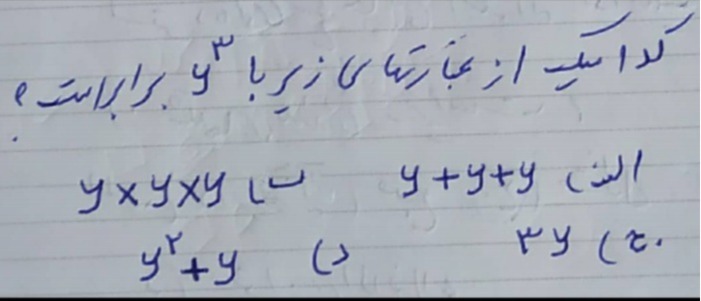 کدامیک از عبارتهای زیر با y^۳ برابر است؟
الف) y+y+y ب) y×y×y
ج) ۳y د) y^۲+y